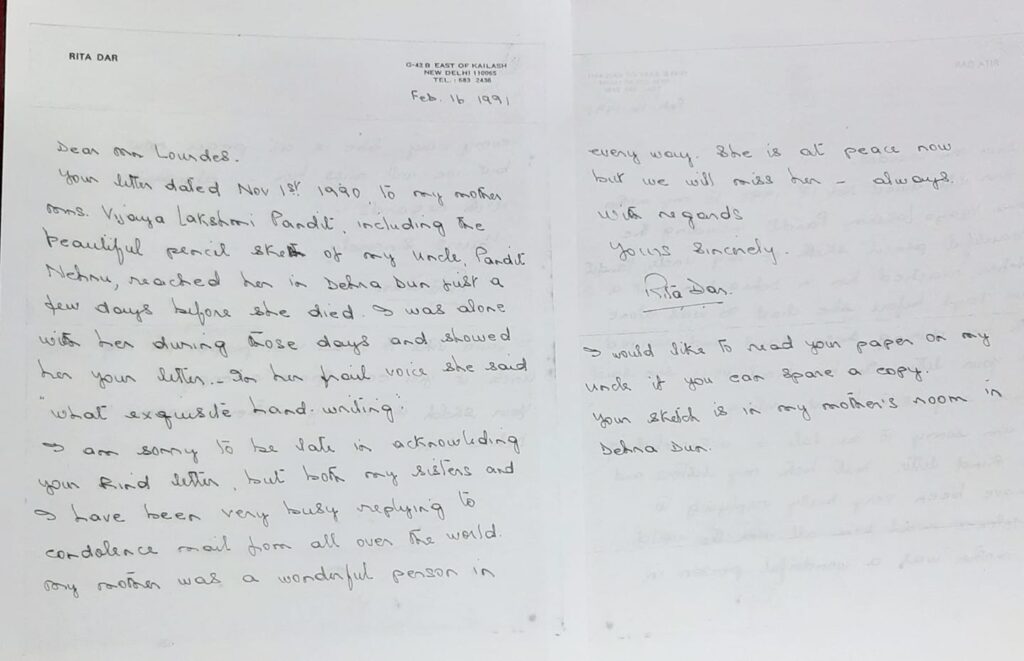 RITA DAR
G-43 B EAST OF KAILASH
NEW DELHI 110065
TEL. : 683 2436
Feb. 16 1991
Dear Mr Lourdes.
Your letter dated Nov 1st 1990 to my mother
Mrs. Vijaya Lakshmi Pandit, including the
beautiful pencil sketh of my uncle, Pandit
Nehru, reached her in Dehra Dun just a
few days before she died. I was alone
with her during those days and showed
her your letter.. In her frail voice she said
"What exquisite hand-writing."
I am sorry to be late in acknowleding
your kind letter, but both my sisters and
I have been very busy replying to
condolence mail from all over the world.
My mother was a wonderful person in
every way. She is at peace now
but we will miss her - always.
With regards
Yours Sincrely.
Rita Dar.
I would like to read your paper on my
uncle if you can spare a copy.
Your sketch is in my mother's room in
Dehra Dun.